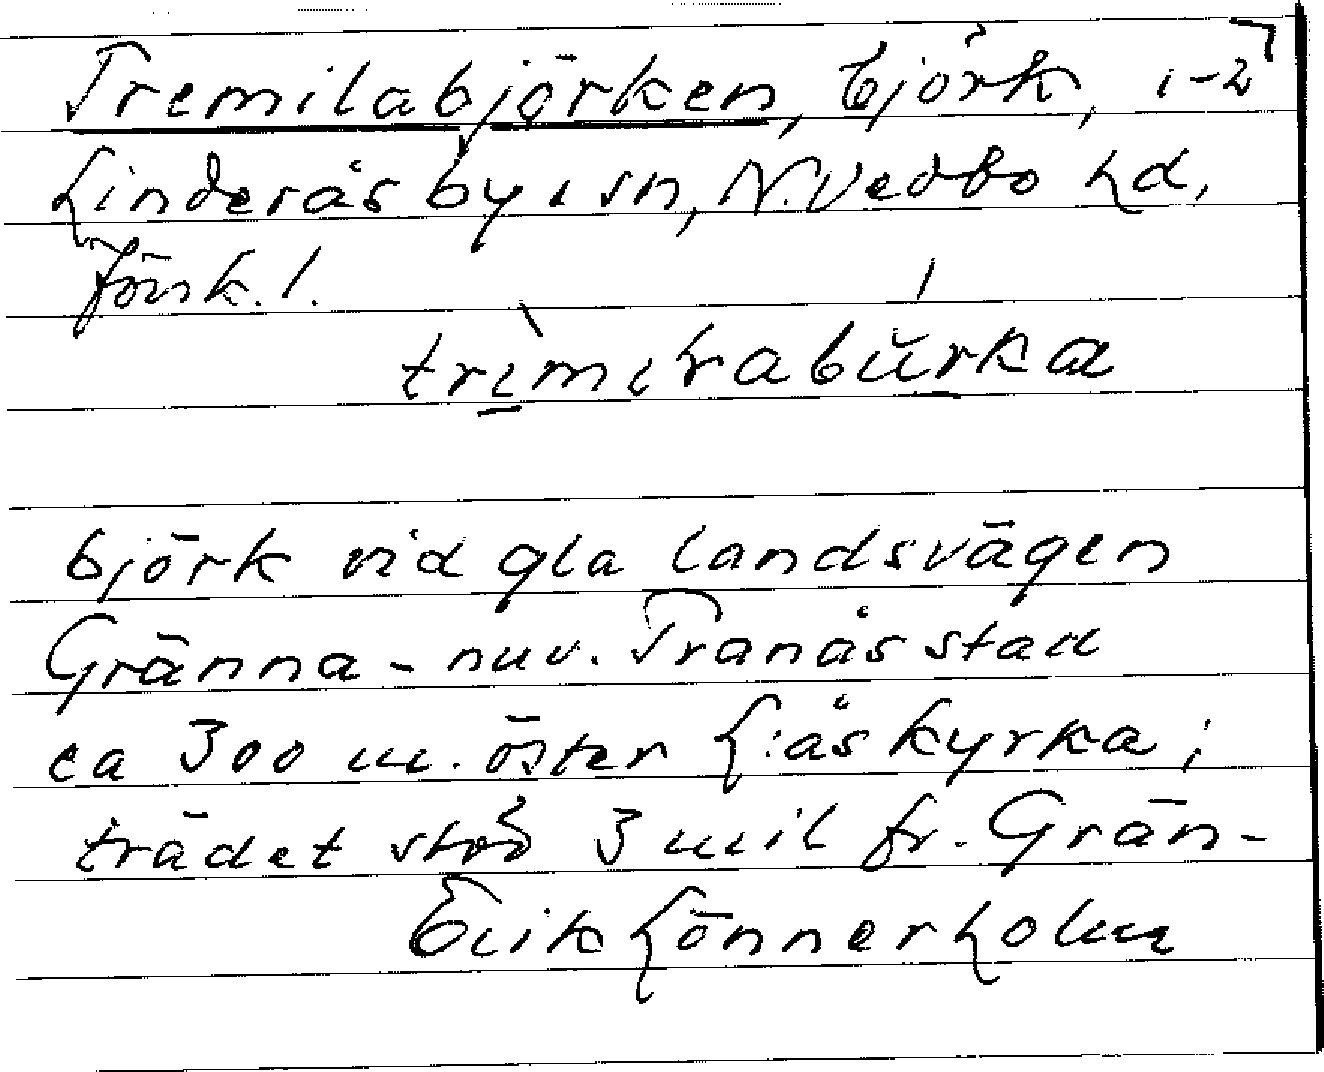 Tremilabjörken, björk, 1-2
Linderås by i sn, N. Vedbo hd,
Jönk. l.
björk vid gla landsvägen
Gränna - nuv. Tranås stad
ca 300 m. öster L:ås kyrka;
trädet stod 3 mil fr. Grän-
Erik Lönnerholm